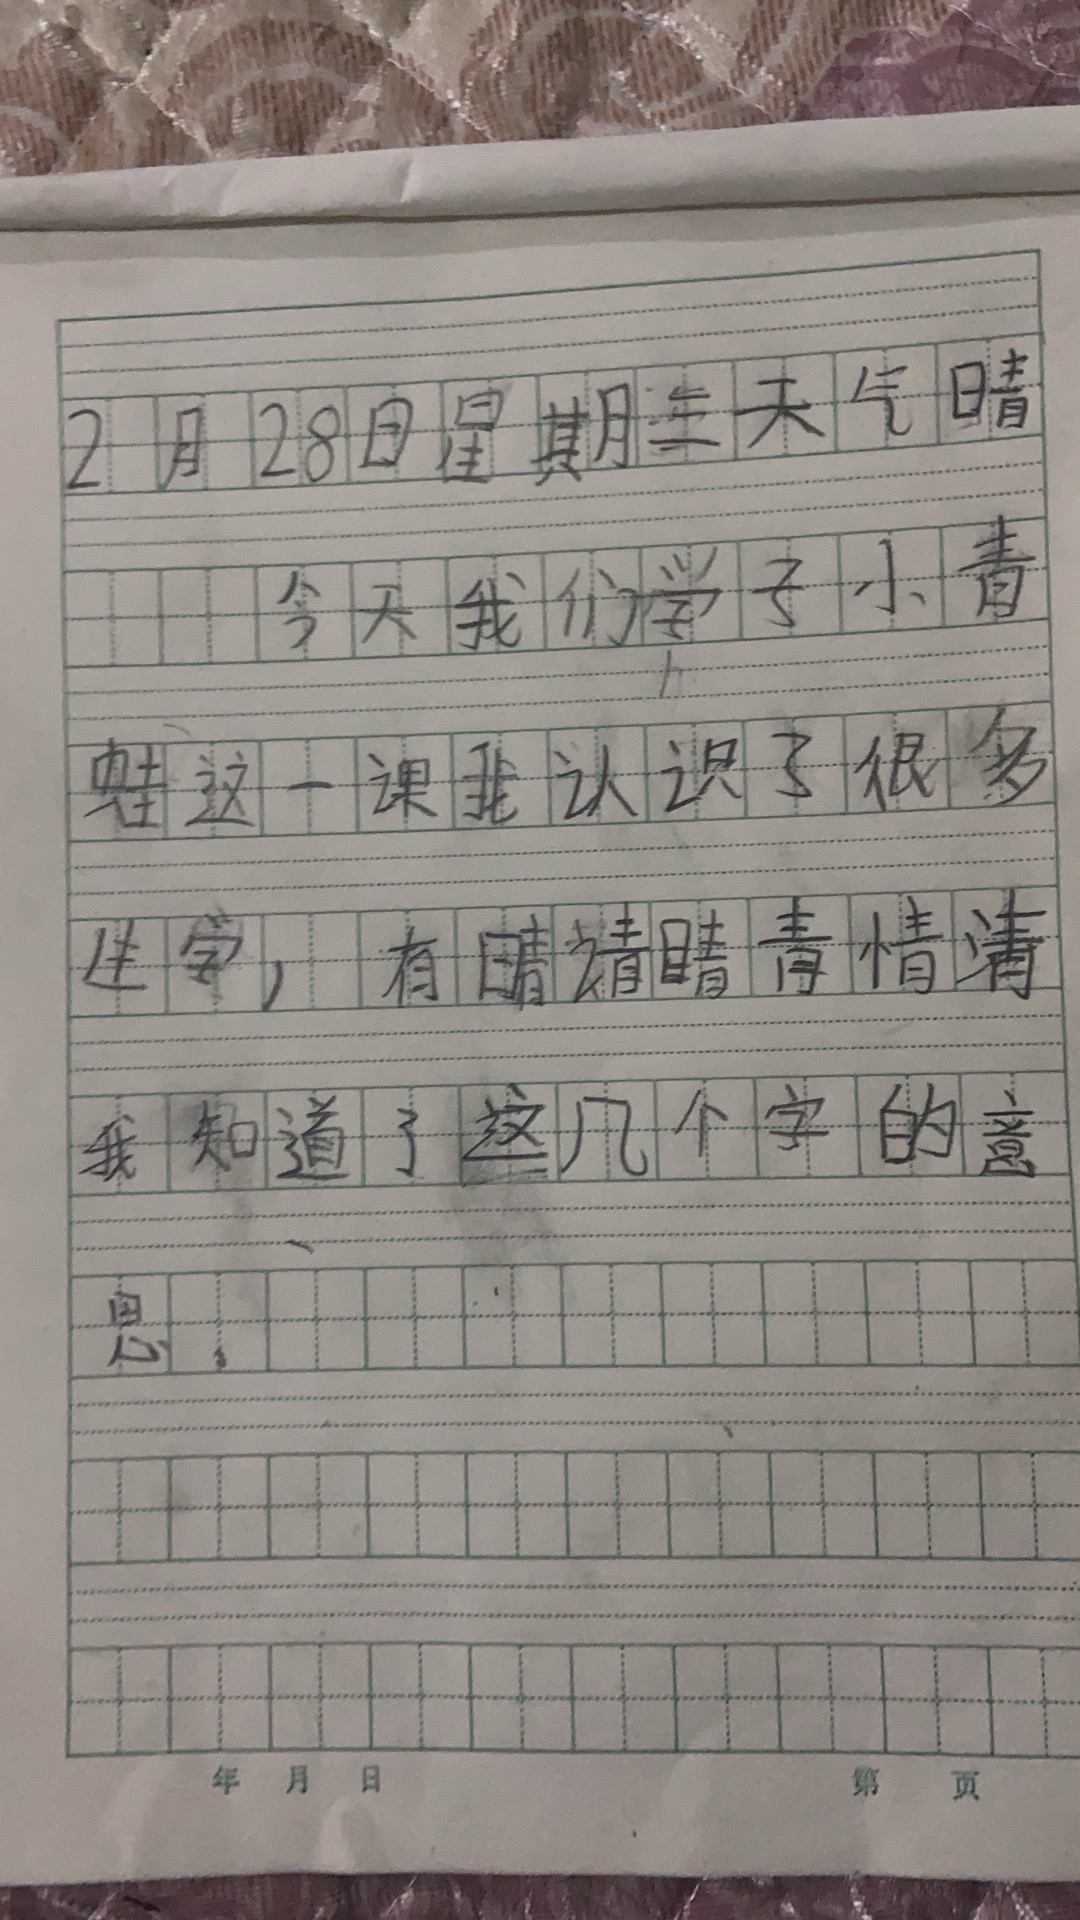 2月28日星期三天气晴
今天我们学了小青
蛙这一课我认识了很多
生字,有晴请睛青情清
我知道了这几个字的意
思.
年 月 日 第 页